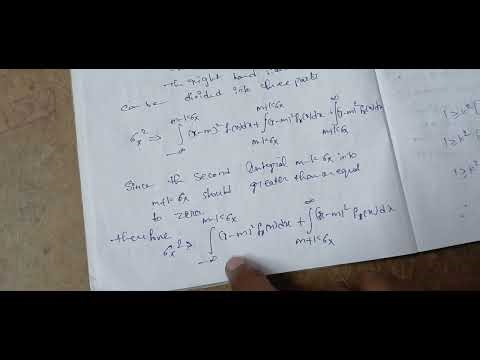 the right hand
can be divided into three parts
σx² ⇒ ∫_{-∞}^{m-kσx} (x-m)² Px(x)dx + ∫_{m-kσx}^{m+kσx} (x-m)² Px(x)dx + ∫_{m+kσx}^{∞} (x-m)² Px(x)dx
Since the second Integral m-kσx into
m+kσx should greater than or equal
to zero
therefore
σx² ≥ ∫_{-∞}^{m-kσx} (x-m)² Px(x)dx + ∫_{m+kσx}^{∞} (x-m)² Px(x)dx
1 ≥ k²
1 ≥ k²
1 ≥ k²